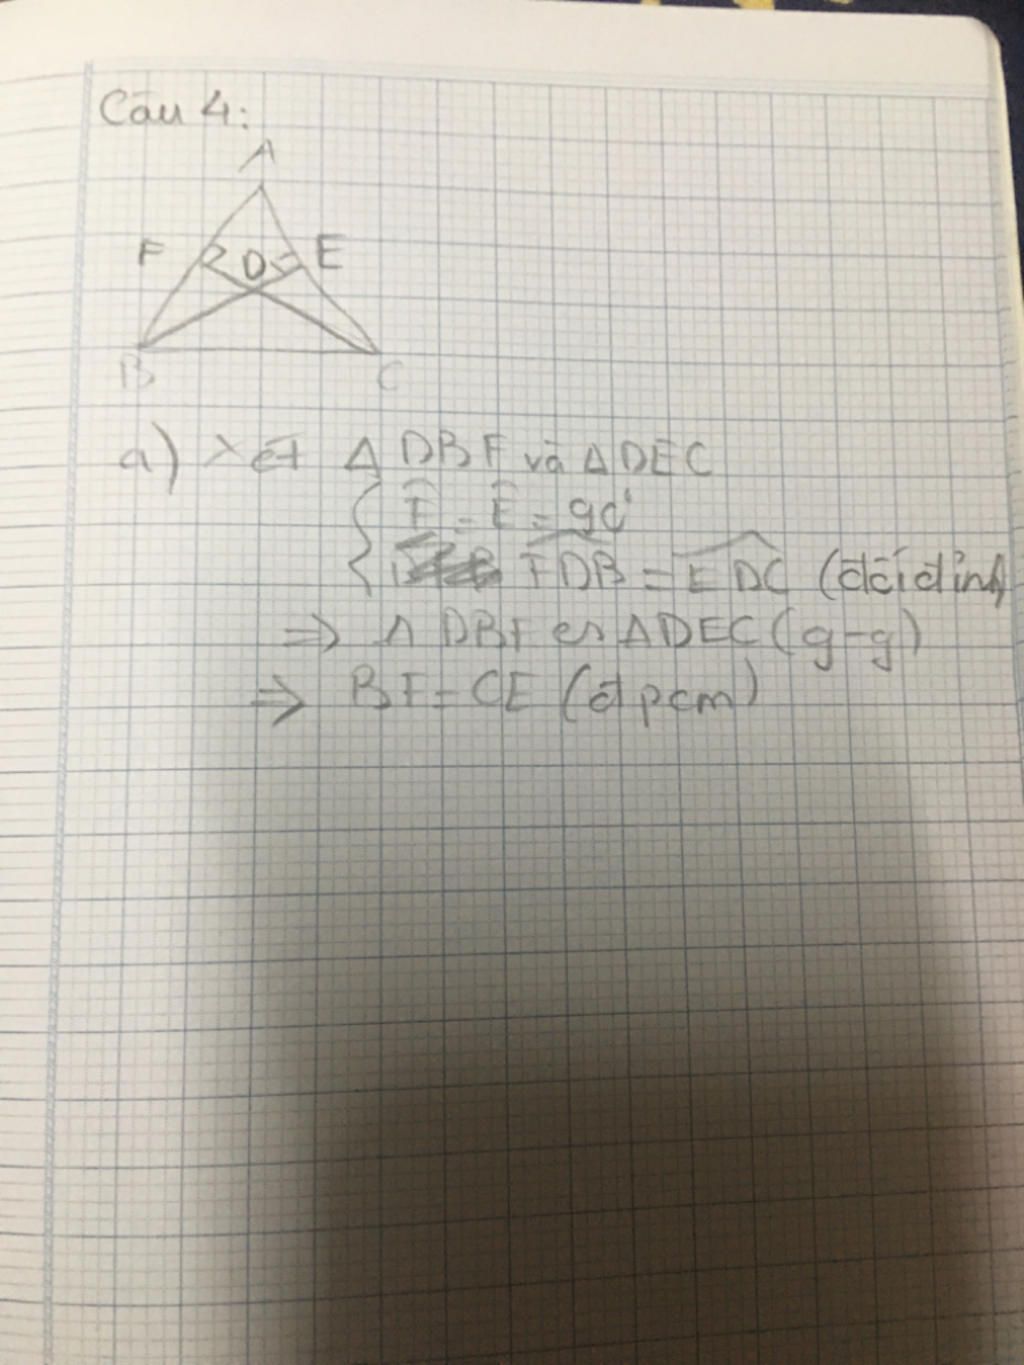 Câu 4:
A
F D E
B C
a) Xét Δ DBF và Δ DEC
F̂ = Ê = 90°
FDB = EDC (đối đỉnh)
=> Δ DBF ∽ Δ DEC (g-g)
=> BF = CE (đpcm)